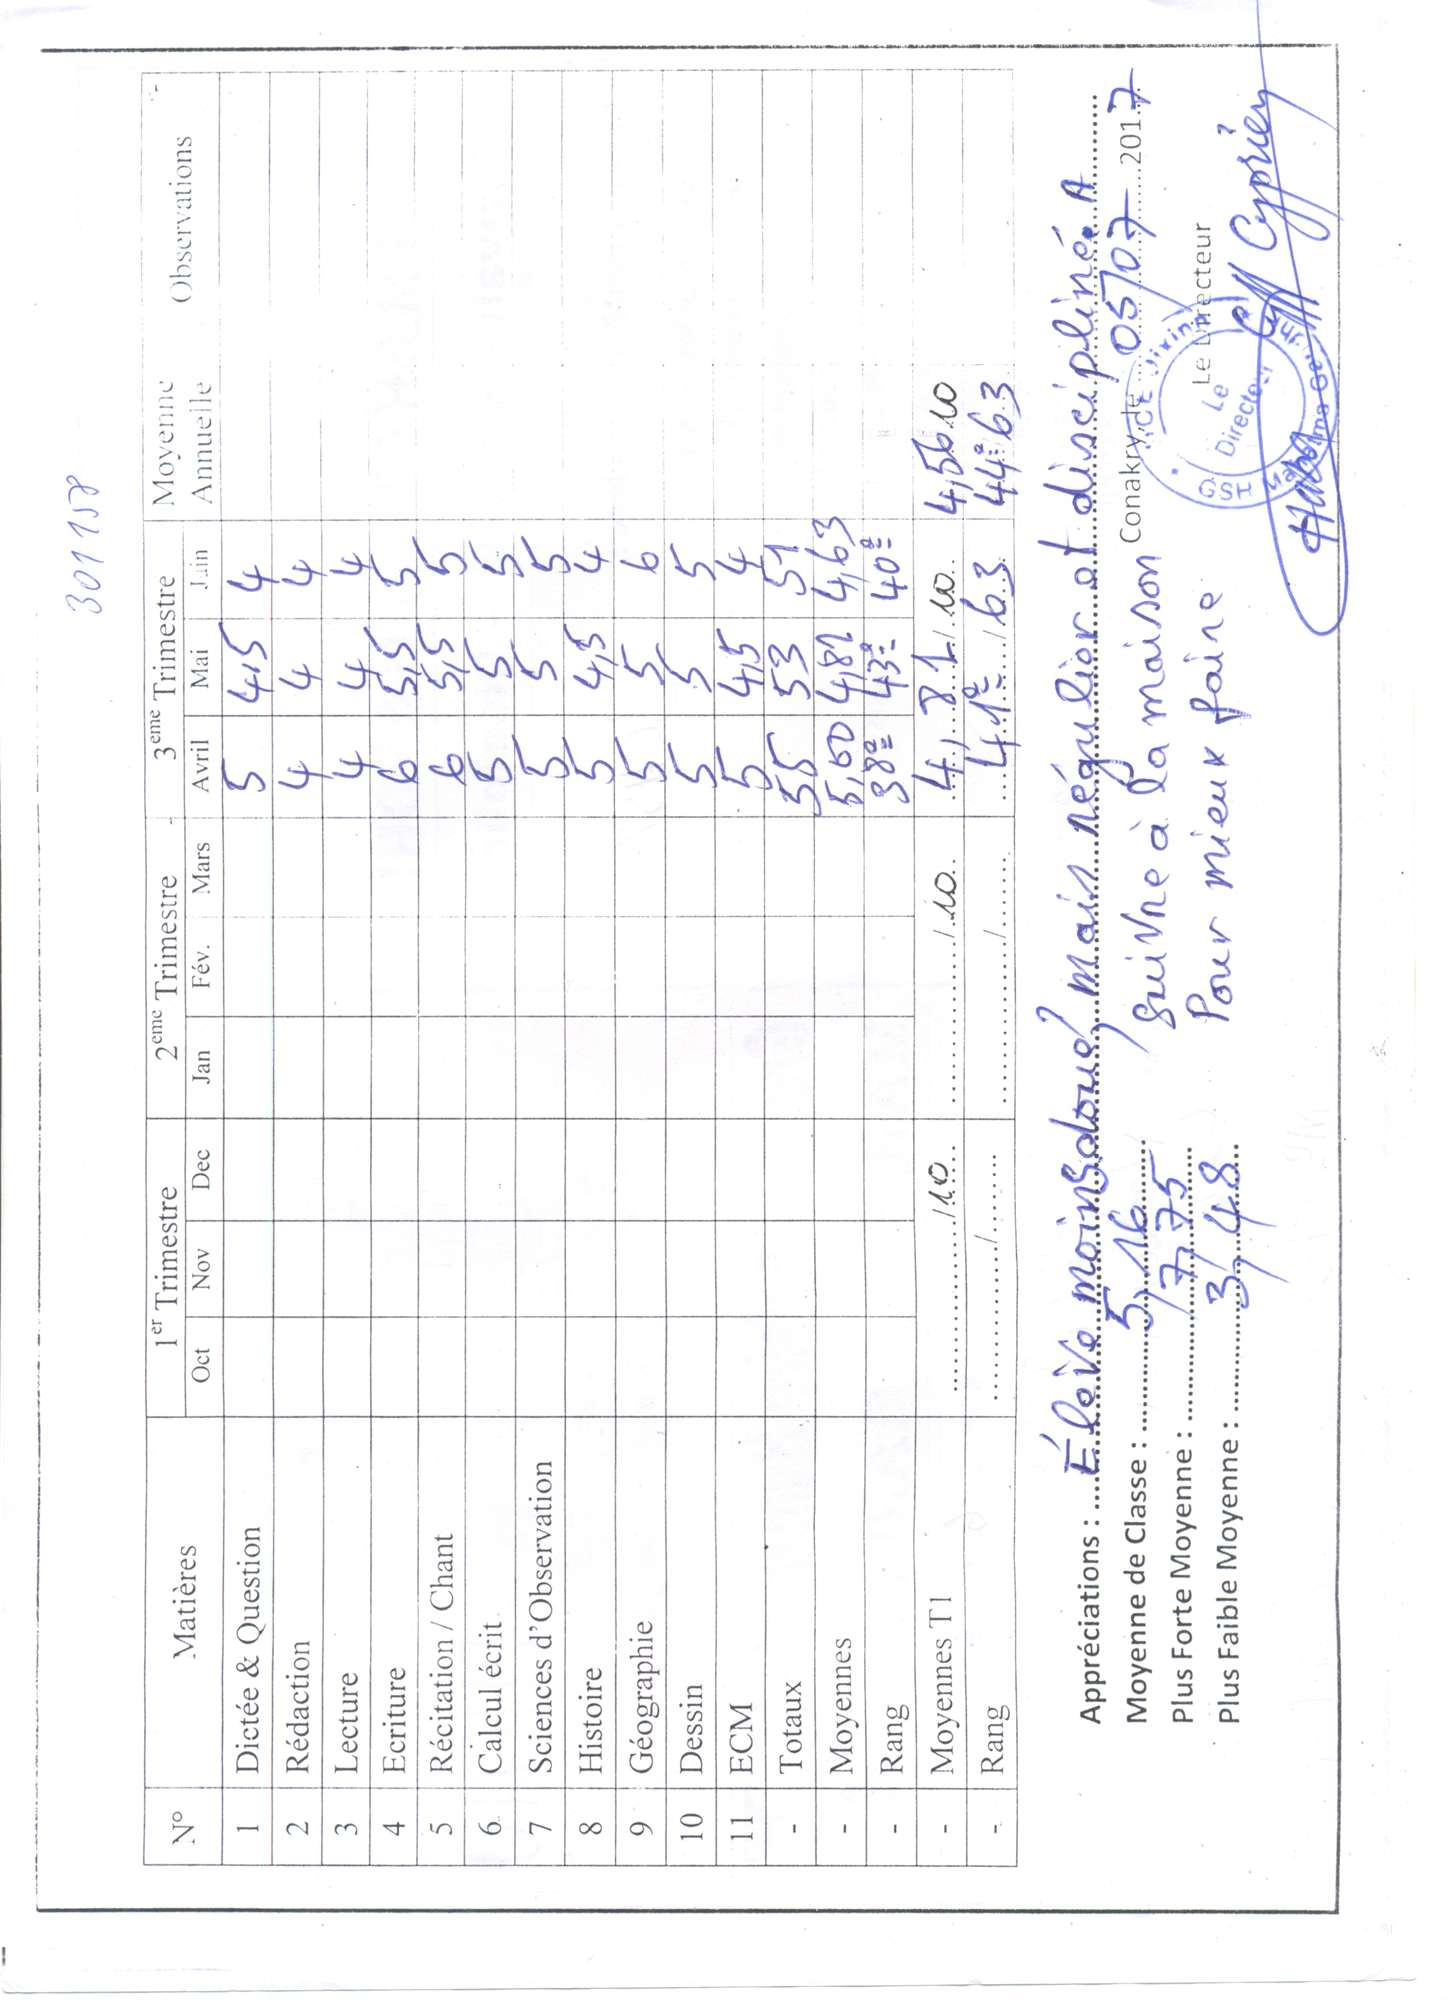 301158
N° Matières 1er Trimestre 2eme Trimestre 3eme Trimestre Moyenne Annuelle Observations
Oct Nov Dec Jan Fév. Mars Avril Mai Juin
1 Dictée & Question 5 4,5 4
2 Rédaction 4 4 4
3 Lecture 4 4 4
4 Ecriture 6 5,5 5
5 Récitation / Chant 6 5,5 5
6 Calcul écrit 5 5 5
7 Sciences d'Observation 5 5 5
8 Histoire 5 4,5 4
9 Géographie 5 5 6
10 Dessin 5 5 5
11 ECM 5 4,5 4
- Totaux 55 53 51
- Moyennes 5,00 4,82 4,63
- Rang 38e 43e 40e
- Moyennes T1 /10 /10 4,81/10 4,56/10
- Rang / / 41e/63 44e/63
Appréciations : Élève moins doué, mais régulier et discipliné. A
suivre à la maison
Pour mieux faire
Moyenne de Classe : 5,16
Plus Forte Moyenne : 7,75
Plus Faible Moyenne : 3,48
Conakry, le 05/07 2017
Le Directeur
Le
Directeur
GSH
Cyprien